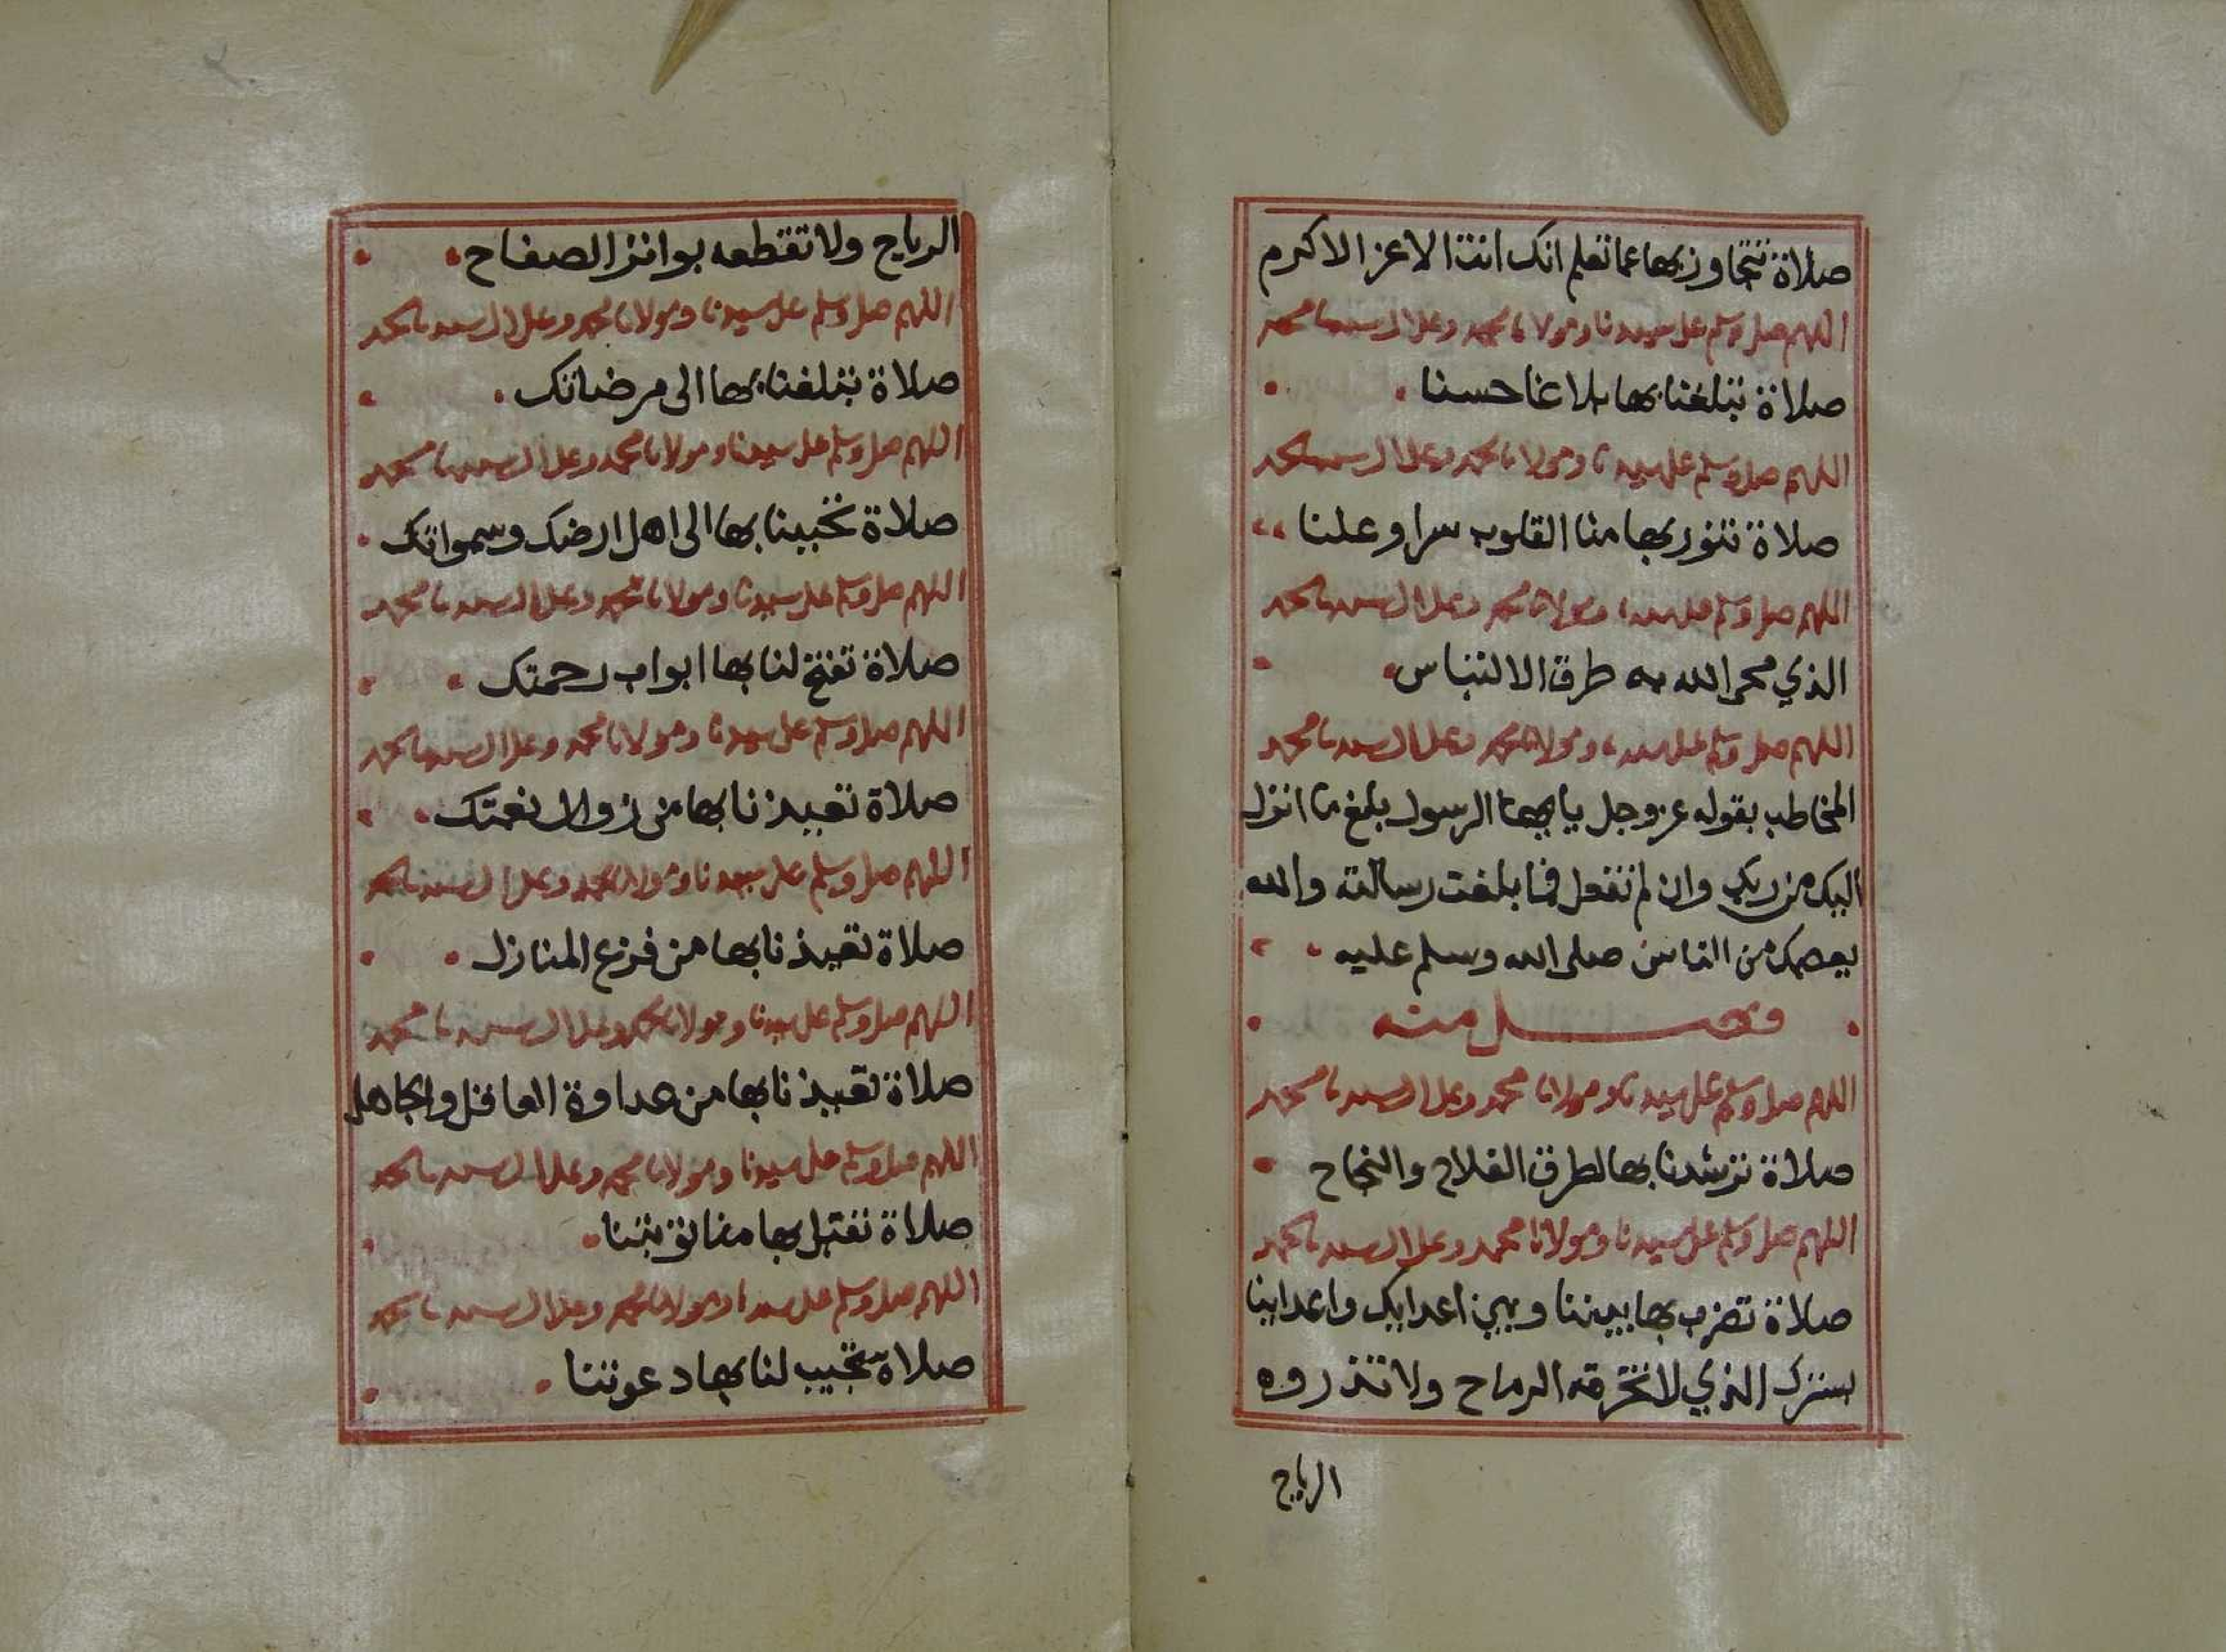 صلاة تتجاوز بها عما تعلم انك انت الاعز الاكرم
اللهم صل وسلم على سيدنا ومولانا محمد وعلى ال سيدنا محمد
صلاة تبلغنا بها بلاغا حسنا
اللهم صل وسلم على سيدنا ومولانا محمد وعلى ال سيدنا محمد
صلاة تنور بها منا القلوب سرا وعلنا
اللهم صل وسلم على سيدنا ومولانا محمد وعلى ال سيدنا محمد
الذي محى الله به طرق الالتباس
اللهم صل وسلم على سيدنا ومولانا محمد وعلى ال سيدنا محمد
المخاطب بقوله عز وجل يا يها الرسول بلغ ما انزل
اليك من ربك وان لم تفعل فما بلغت رسالته والله
يعصمك من الناس صلى الله وسلم عليه
وصل منه
اللهم صل وسلم على سيدنا ومولانا محمد وعلى ال سيدنا محمد
صلاة ترشدنا بها لطرق الفلاح والنجاح
اللهم صل وسلم على سيدنا ومولانا محمد وعلى ال سيدنا محمد
صلاة تضرب بها بيننا وبين اعدايك واعداينا
بسترك الذي لا تخرقه الرماح ولا تذروه
الرياح
الرياح ولا تقطعه بواتر الصفاح
اللهم صل وسلم على سيدنا ومولانا محمد وعلى ال سيدنا محمد
صلاة تبلغنا بها الى مرضاتك
اللهم صل وسلم على سيدنا ومولانا محمد وعلى ال سيدنا محمد
صلاة تحببنا بها الى اهل ارضك وسمواتك
اللهم صل وسلم على سيدنا ومولانا محمد وعلى ال سيدنا محمد
صلاة تفتح لنا بها ابواب رحمتك
اللهم صل وسلم على سيدنا ومولانا محمد وعلى ال سيدنا محمد
صلاة تعيذنا بها من زوال نعمتك
اللهم صل وسلم على سيدنا ومولانا محمد وعلى ال سيدنا محمد
صلاة تعيذنا بها من فزع المنازل
اللهم صل وسلم على سيدنا ومولانا محمد وعلى ال سيدنا محمد
صلاة تعيذنا بها من عداوة العاقل والجاهل
اللهم صل وسلم على سيدنا ومولانا محمد وعلى ال سيدنا محمد
صلاة تقبل بها منا توبتنا
اللهم صل وسلم على سيدنا ومولانا محمد وعلى ال سيدنا محمد
صلاة تستجيب لنا بها دعوتنا